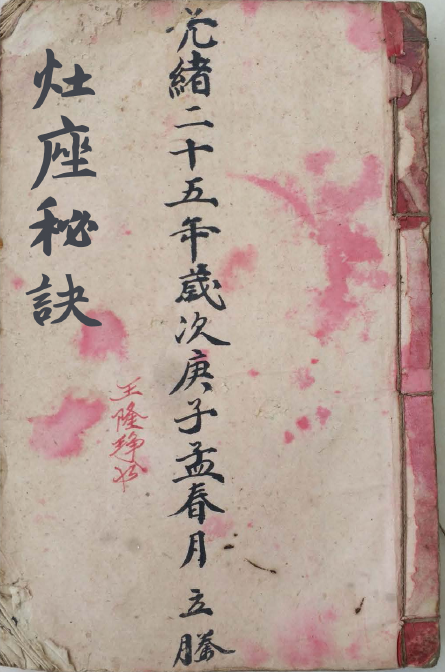 光緒二十五年歲次庚子孟春月立
王隆
灶座秘訣